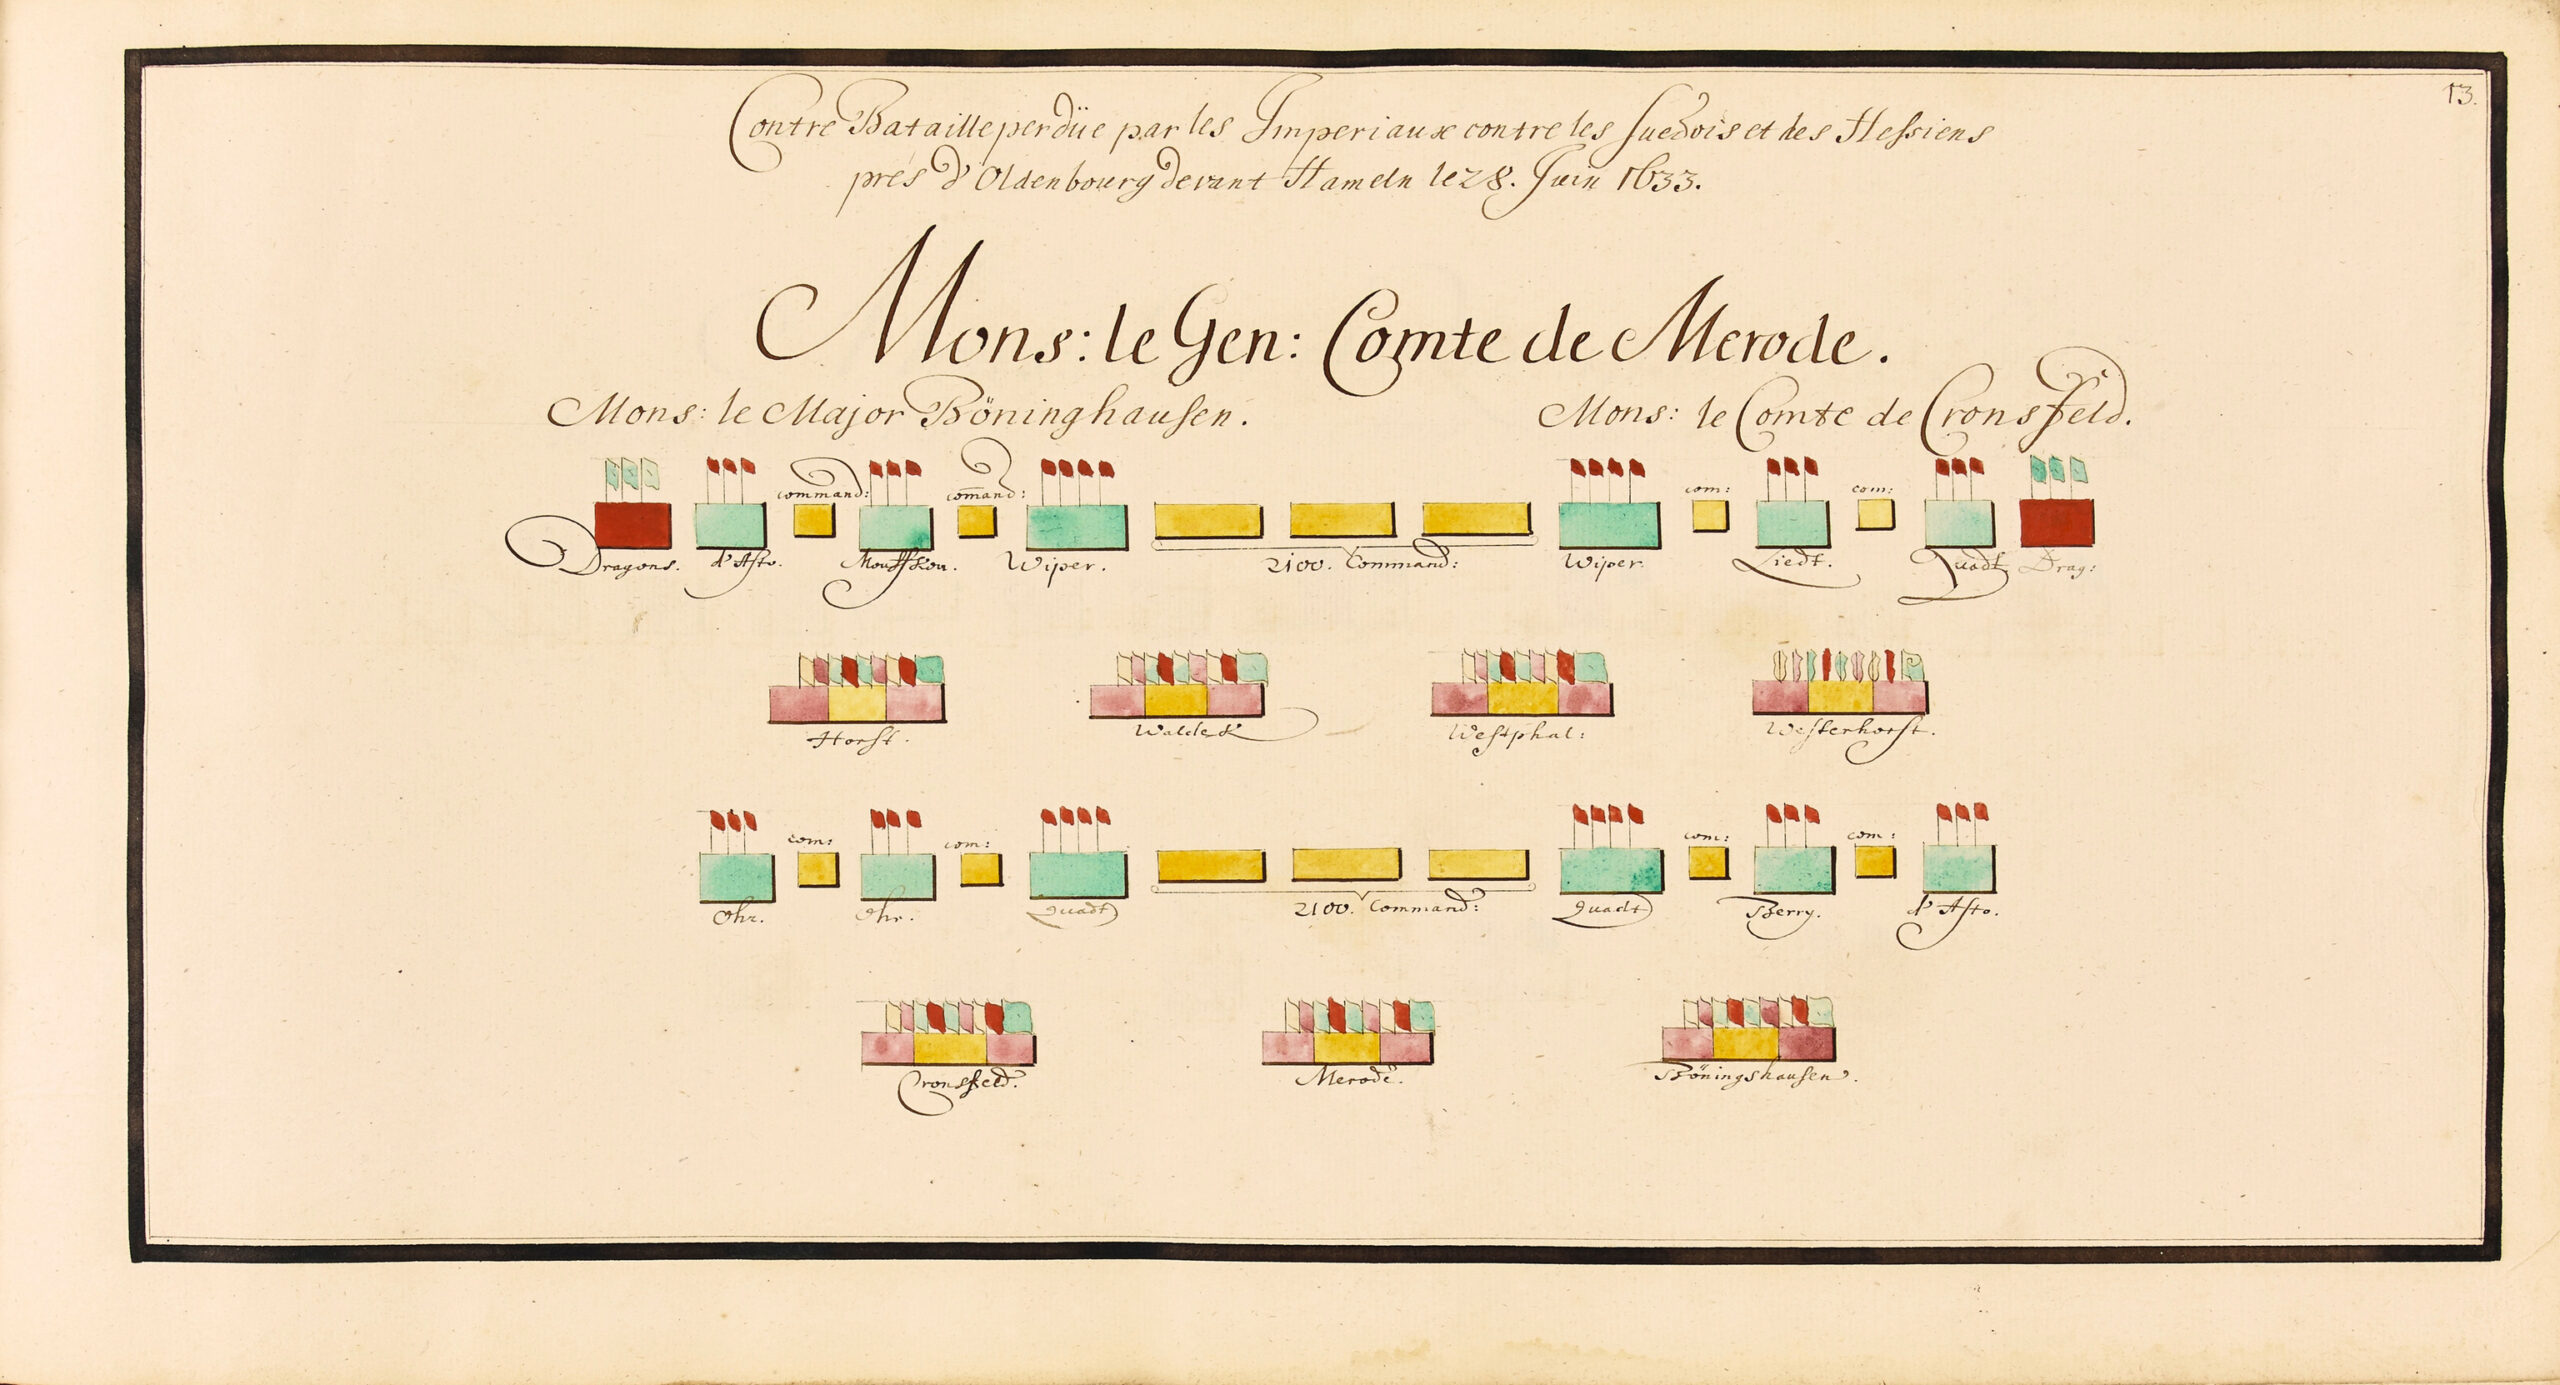 13.
Contre Bataille perdüe par les Imperiaux contre les Suedois et les Hessiens
prés d'Oldenbourg devant Hameln le 28. Juin 1633.
Mons: le Gen: Comte de Merode.
Mons: le Major Böninghausen. Mons: le Comte de Cronsfeld.
command: comand: com: com:
Dragons. d'Asto. Wiper. 2100. Command: Wiper Liedt. Quadt Drag:
Horst. Waldeck Westphal: Westerhorst.
com: com: com: com:
Ohr. Ohr. Quadt 2100. Command: Quadt Berry. d'Asto.
Cronsfeld. Merode. Böningshausen.